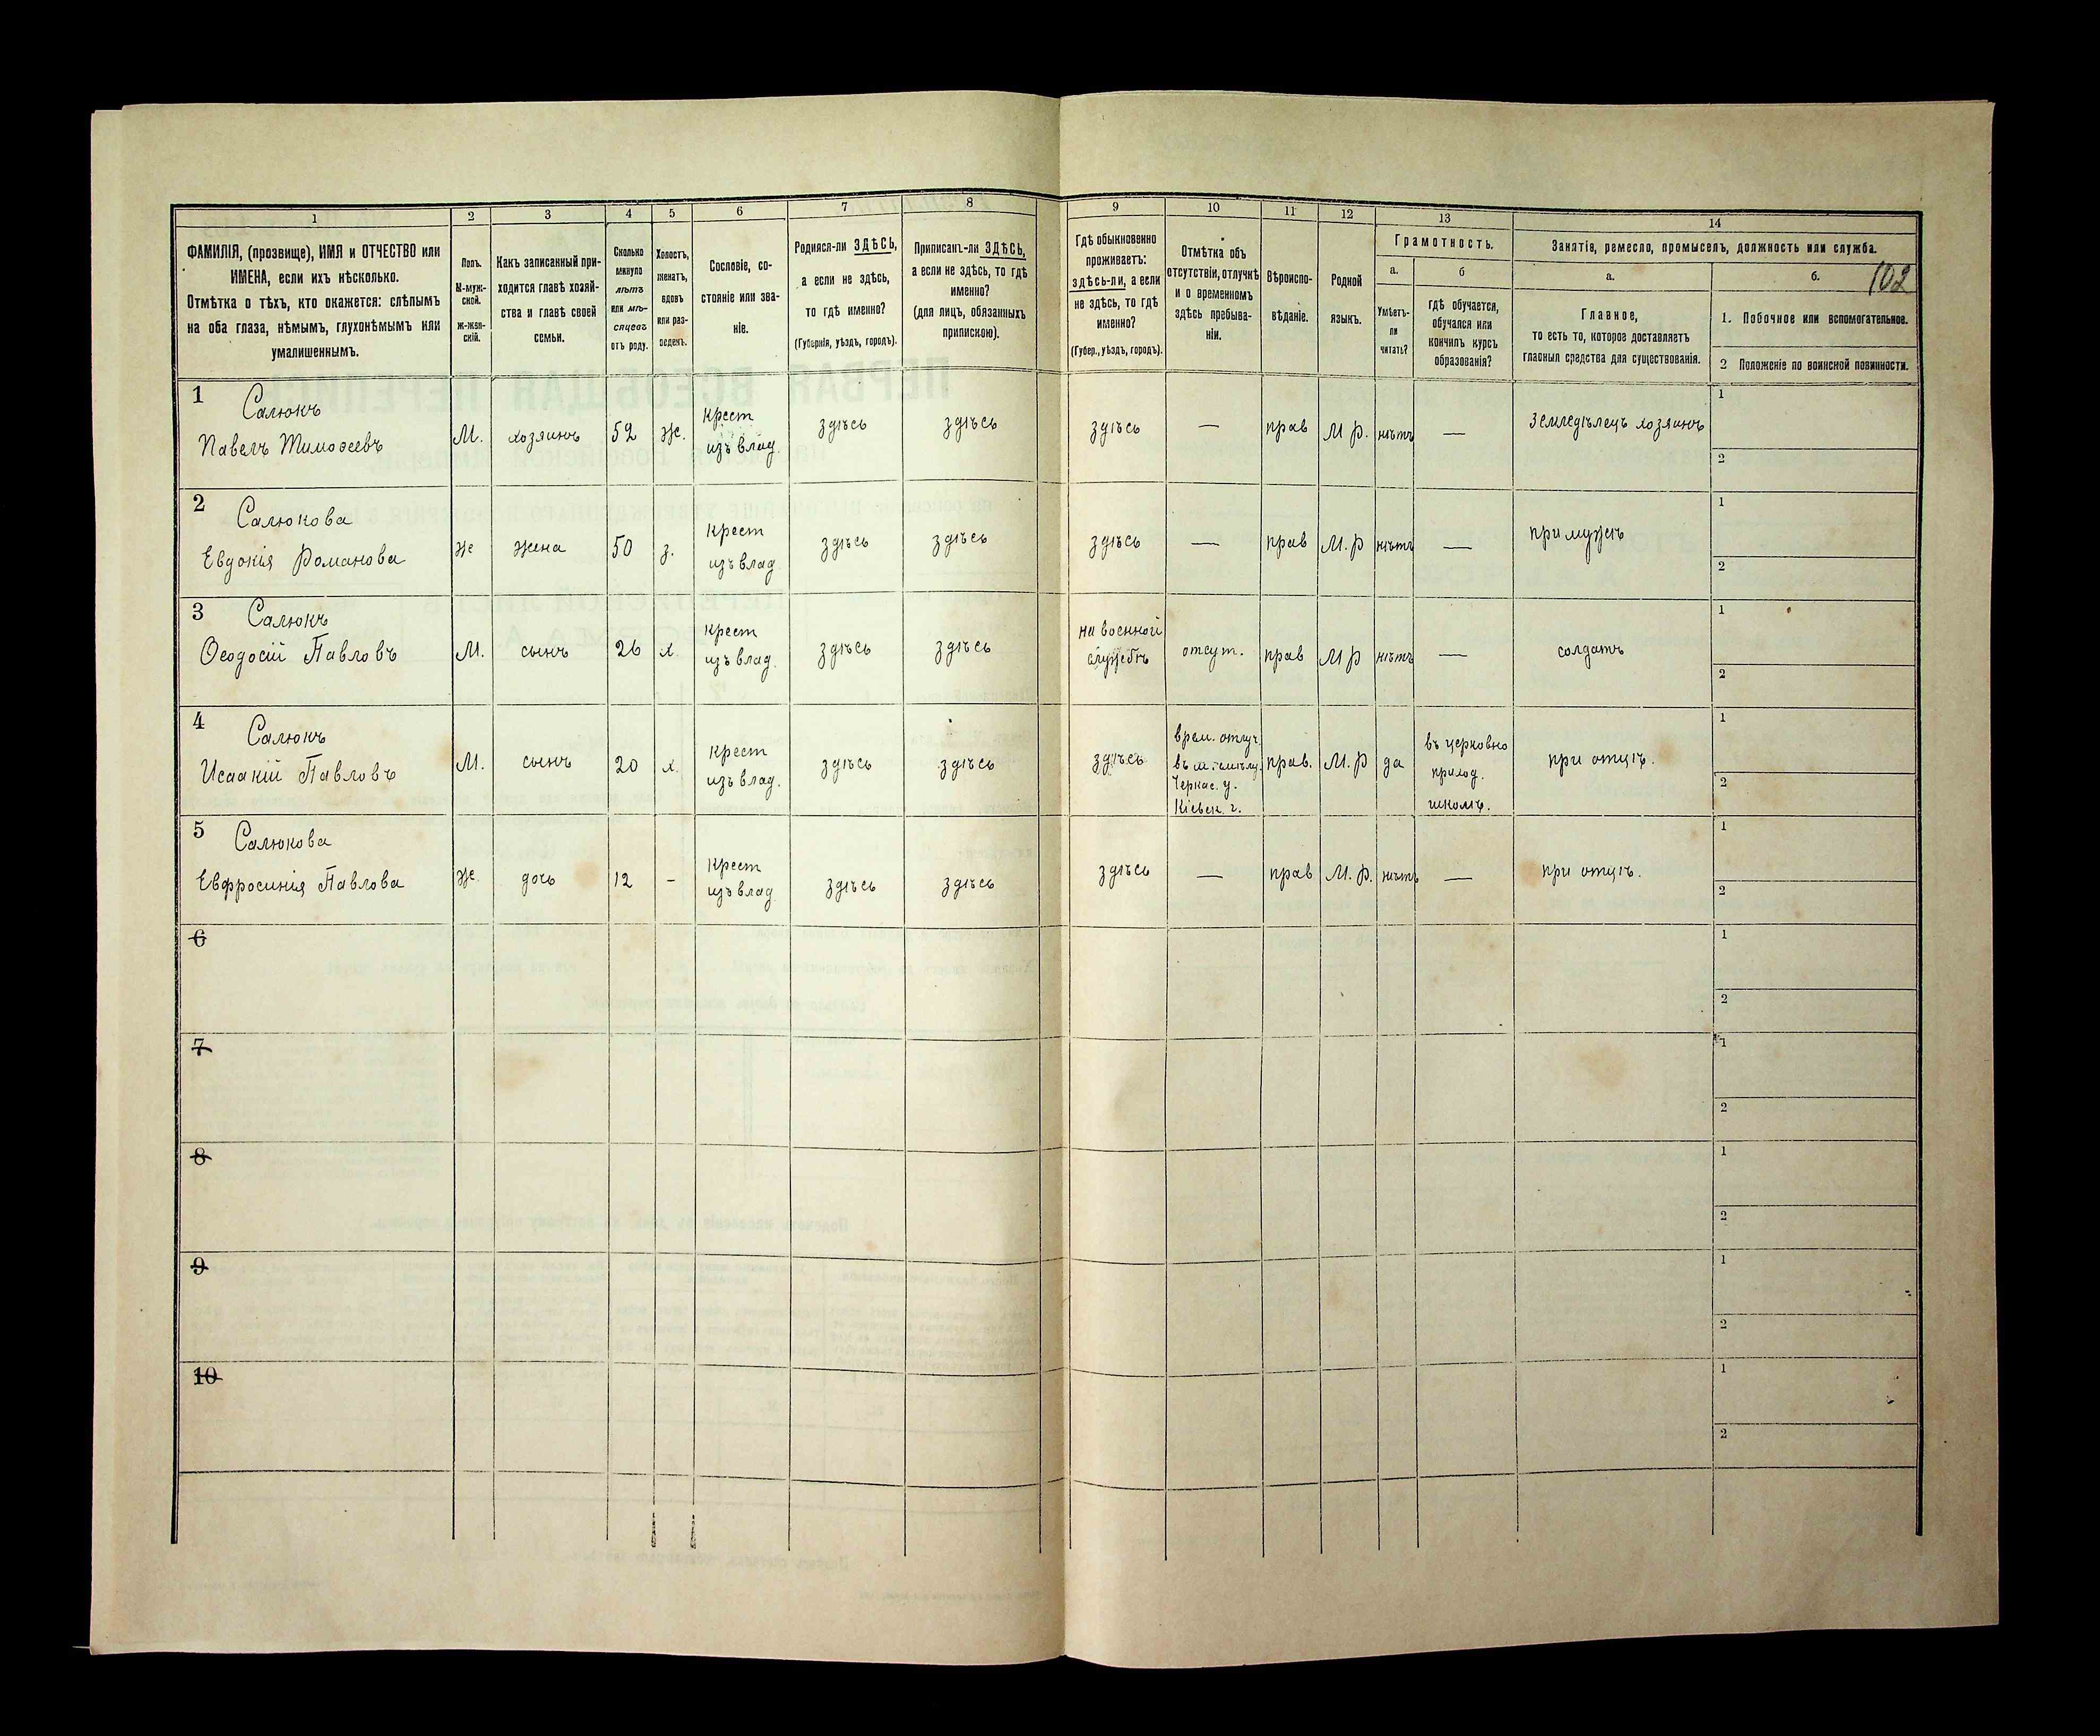 1 2 3 4 5 6 7 8 9 10 11 12 13 14
ФАМИЛІЯ, (прозвище), ИМЯ и ОТЧЕСТВО или
ИМЕНА, если ихъ нѣсколько.
Отмѣтка о тѣхъ, кто окажется: слѣпымъ
на оба глаза, нѣмымъ, глухонѣмымъ или
умалишеннымъ.
Полъ.
М-муж-
ской.
Ж-жен-
скій.
Какъ записанный при-
ходится главѣ хозяй-
ства и главѣ своей
семьи.
Сколько
минуло
лѣтъ
или мѣ-
сяцевъ
отъ роду.
Холостъ,
женатъ,
вдовъ
или раз-
веденъ.
Сословіе, со-
стояніе или зва-
ніе.
Родился-ли ЗДѢСЬ,
а если не здѣсь,
то гдѣ именно?
(Губернія, уѣздъ, городъ).
Приписанъ-ли ЗДѢСЬ,
а если не здѣсь, то гдѣ
именно?
(для лицъ, обязанныхъ
припискою).
Гдѣ обыкновенно
проживаетъ:
здѣсь-ли, а если
не здѣсь, то гдѣ
именно?
(Губер., уѣздъ, городъ).
Отмѣтка объ
отсутствіи, отлучкѣ
и о временномъ
здѣсь пребыва-
ніи.
Вѣроиспо-
вѣданіе.
Родной
языкъ.
Грамотность.
а.
Умѣетъ-
ли
читать?
б
гдѣ обучается,
обучался или
кончилъ курсъ
образованія?
Занятіе, ремесло, промыселъ, должность или служба.
а.
Главное,
то есть то, которое доставляетъ
главныя средства для существованія.
б.
102
1. Побочное или вспомогательное.
2 Положеніе по воинской повинности.
1 Салюкъ
Павелъ Тимоѳеевъ
М.
хозяинъ
52
Ж.
крест
изъ влад.
здѣсь
здѣсь
здѣсь
—
прав
М р.
нѣтъ
—
Земледѣлецъ хозяинъ
1
2
2 Салюкова
Евдокія Романова
Ж
жена
50
з.
крест
изъ влад
здѣсь
здѣсь
здѣсь
—
прав
М. р
нѣтъ
—
при мужѣ
1
2
3 Салюкъ
Ѳеодосій Павловъ
М.
сынъ
26
х
крест
изъ влад.
здѣсь
здѣсь
на военной
службѣ
отсут.
прав
М р
нѣтъ
—
солдатъ
1
2
4 Салюкъ
Исаакій Павловъ
М.
сынъ
20
х.
крест
изъ влад.
здѣсь
здѣсь
здѣсь
врем. отлуч.
въ м.
Черкас. у.
Кіевск. г.
прав.
М. р
да
въ церковно
приход.
школѣ.
при отцѣ.
1
2
5 Салюкова
Евфросинія Павлова
Ж.
дочь
12
-
крест
изъ влад
здѣсь
здѣсь
здѣсь
—
прав
М. р.
нѣтъ
—
при отцѣ.
1
2
6
1
2
7
1
2
8
1
2
9
1
2
10
1
2